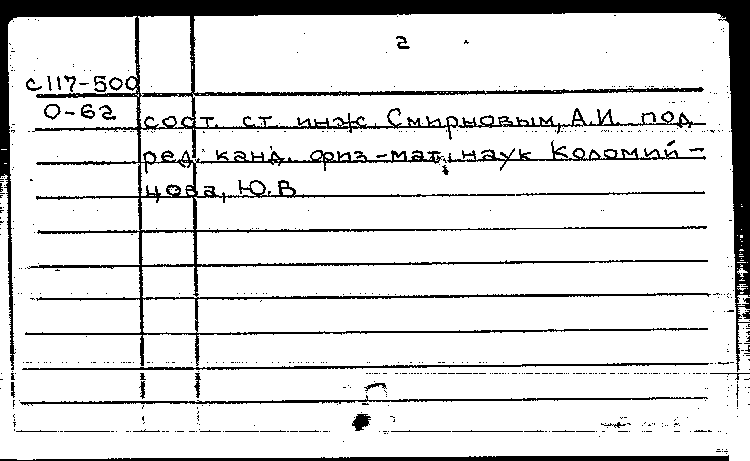 2
с117-500
О-62 сост. ст. инж. Смирновым, А.И. под
ред. канд. физ-мат. наук Коломий-
цова, Ю.В